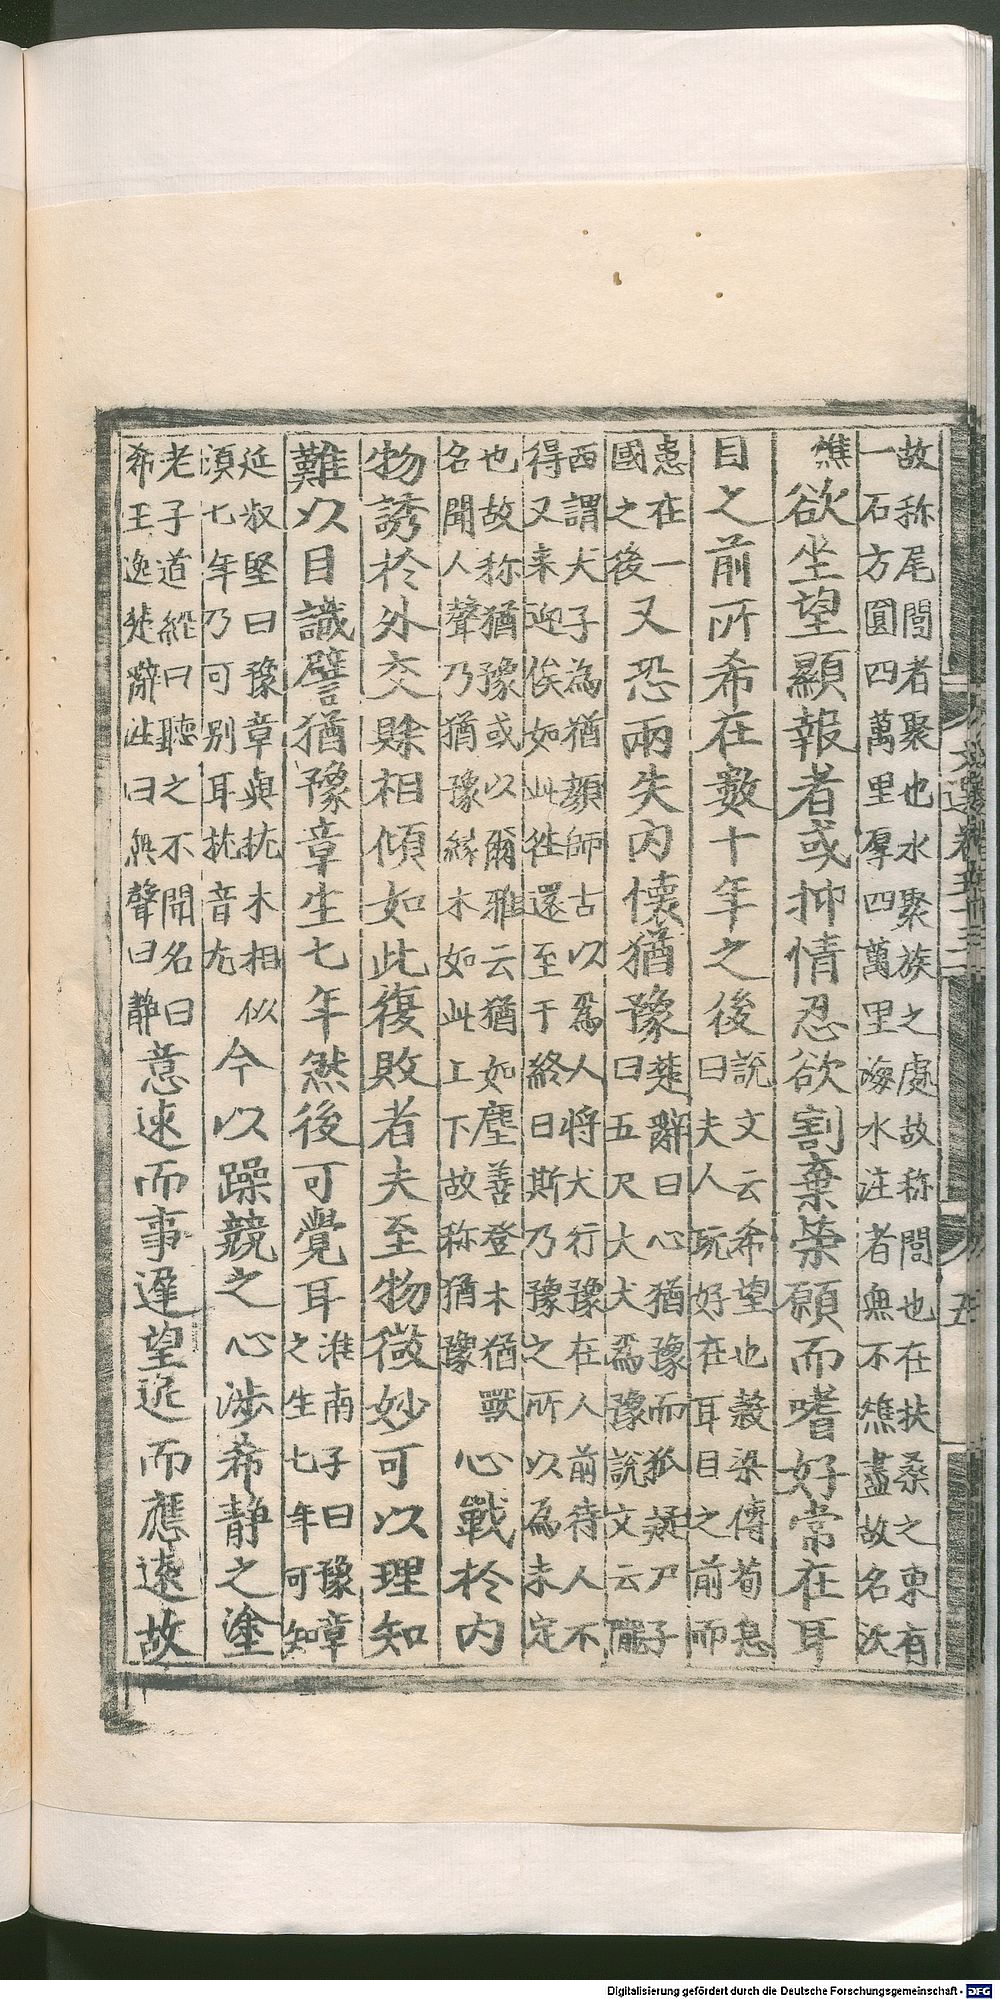 故称尾閭者聚也水聚族之處故称閭也在扶桑之東有
一石方圓四萬里厚四萬里海水注者無不燋盡故名沃
燋欲坐望顯報者或抑情忍欲割棄榮願而嗜好常在耳
目之前所希在數十年之後
說文云希望也穀梁傳荀息
曰夫人玩好在耳目之前而
患在一
國之後
又恐兩失內懷猶豫
楚辭曰心猶豫而狐疑尸子
曰五尺大犬爲豫說文云隴
西謂犬子為猶顔師古以爲人將犬行豫在人前待人不
得又來迎俟如此徃還至于終日斯乃豫之所以為未定
也故称猶豫或以爾雅云猶如麈善登木猶獸
名聞人聲乃猶豫緣木如此上下故称猶豫
心戰於內
物誘於外交賖相傾如此復敗者夫至物微妙可以理知
難以目識譬猶豫章生七年然後可覺耳
淮南子曰豫章
之生七年可知
延叔堅曰豫章與抌木相似
須七年乃可别耳抌音尢
今以躁競之心涉希静之塗
老子道經曰聽之不聞名曰
希王逸楚辭注曰無聲曰静
意速而事遲望近而應遠故
文選卷五十三
五
Digitalisierung gefördert durch die Deutsche Forschungsgemeinschaft - DFG